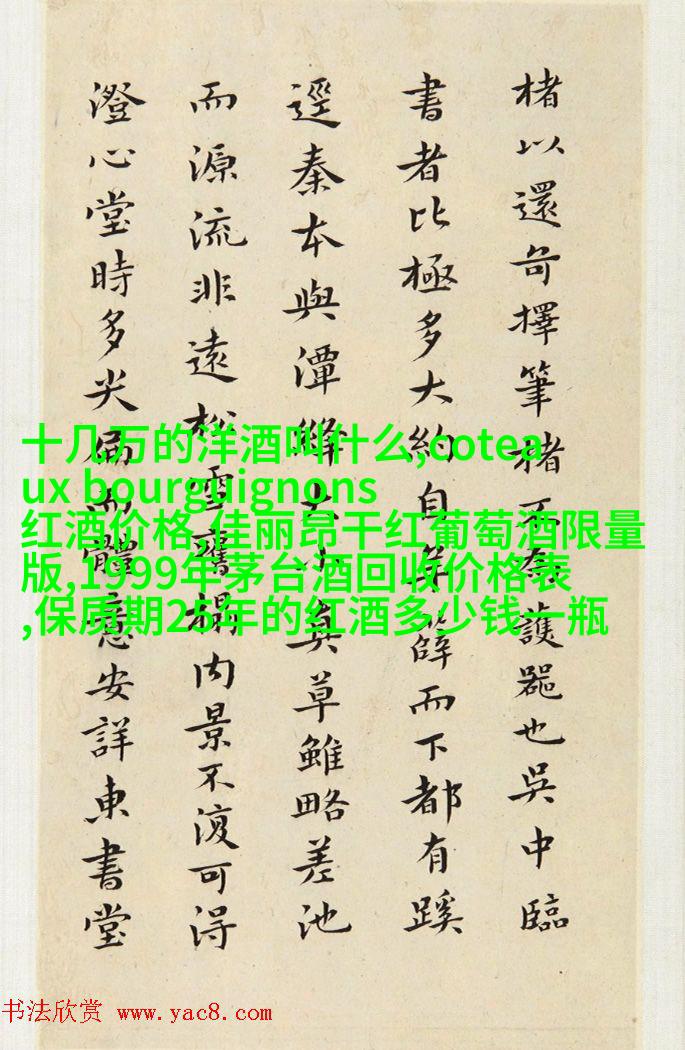 楮以還擇筆楮不為護器也吳中臨
書者比極多大約自薛而下都有蹊
逕秦本與潭絳大小真草雖略差池
而源流非遠松雪舊搨内景不復可得
澄心堂時多尖偏而體應安詳東書堂
十几万的洋酒叫什么,cotea
ux bourguignons
红酒价格,佳丽昂干红葡萄酒限量
版,1999年茅台酒回收价格表
,保质期25年的红酒多少钱一瓶
书法欣赏 www.yac8.com